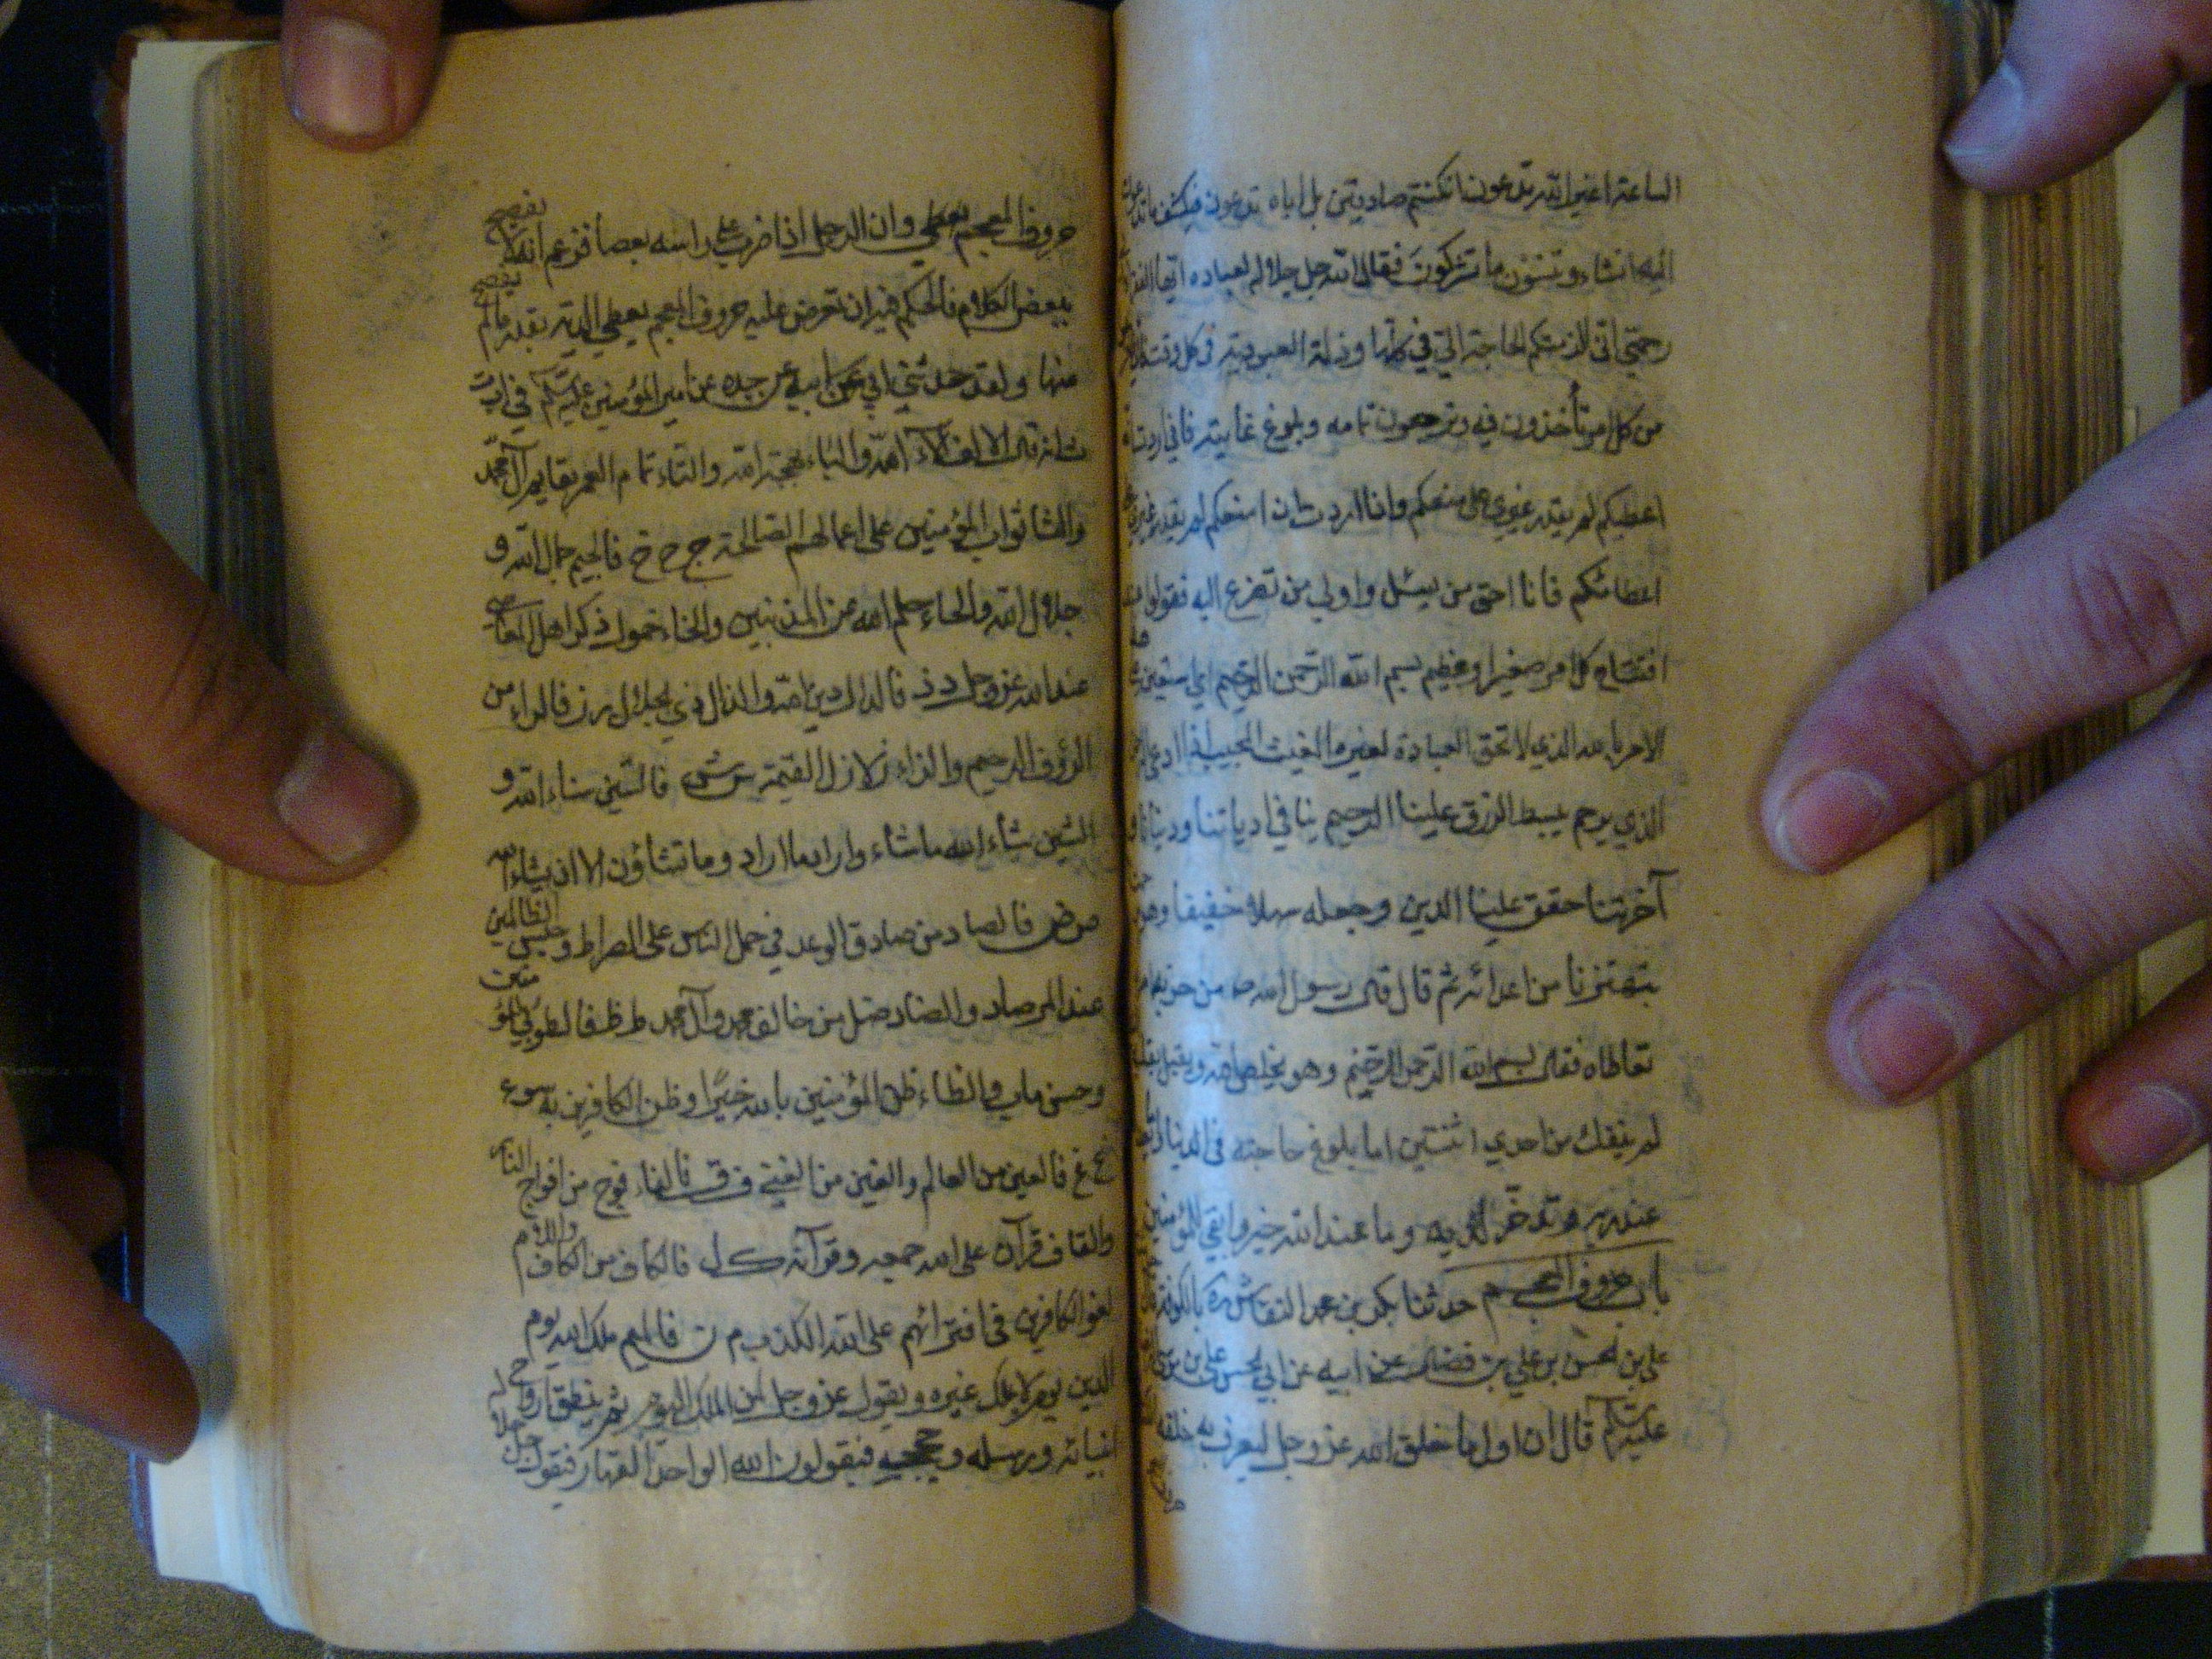 الساعة اغير الله تدعون ان كنتم صادقين بل اياه تدعون فيكشف ما تدعون
اليه انشاء وتنسون ما تشركون فقال الله جل جلاله لعباده ايها الفقراء
رحمتي اني الزمتكم الحاجة الي في كل وذلة العبودية في كل وقت
من كل امر تأخذون فيه وترجعون تمامه وبلوغ غايته فاني اردت
اعطيكم لم يقدر غيري على منعكم وانا اردت ان امنعكم لم يقدر غيري
اعطائكم فانا احق من سئل واولي من تضرع اليه فقولوا
افتتاح كل امر صغير او عظيم بسم الله الرحمن الرحيم اي استعين
الامر بالله الذي لا تحق العبادة لغيره المغيث المجيب اذا دعي
الذي يرحم يبسط الرزق علينا الرحيم بنا في ادياننا ودنيانا و
آخرتنا حقق علينا الدين وجعله سهلا خفيفا وهو
من اعدائه ثم قال قال رسول الله ص من حزنه امر
تعاطاه فقال بسم الله الرحمن الرحيم وهو مخلص لله ويقبل
لم ينفك من احدي اثنتين اما بلوغ حاجته في الدنيا
عند ربه وتدخر لديه وما عند الله خير وابقي للمؤمنين
باب حروف المعجم حدثنا بكر بن محمد النقاش ره بالكوفة
علي بن الحسن بن علي بن فضال عن ابيه عن ابي الحسن علي بن موسى
عليه السلام قال ان اول ما خلق الله عز وجل ليعرف به خلقه
حروف المعجم وان الرجل اذا ضرب على راسه بعصا فزعم انه لا يفصح
ببعض الكلام فالحكم فيه ان تعرض عليه حروف المعجم يعطي الدية بقدر ما لم يفصح
منها ولقد حدثني ابي عن ابيه عن جده عن امير المؤمنين عليه السلم في ا ب ت
ث انه قال الالف آلاء الله والباء بهجة الله والتاء تمام الامر بقايم آل محمد
والثا ثواب المؤمنين على اعمالهم الصالحة ج ح خ فالجيم جمال الله و
جلال الله والحاء حلم الله عن المذنبين والخاء خمول ذكر اهل المعاصي
عند الله عز وجل د ذ فالدال دين الله والذال ذي الجلال ر ز فالراء من
الرؤف الرحيم والزاء زلازل القيمة س ش فالسين سناء الله و
الشين شاء الله ما شاء واراد ما اراد وما تشاؤن الا ان يشاء الله
ص ض فالصاد من صادق الوعد في حمل الناس على الصراط وحبس الظالمين
عند المرصاد والضاد ضل من خالف محمد وآل محمد ط ظ فالطوبي للمؤمنين
وحسن ماب والظاء ظن المؤمنين بالله خيرا وظن الكافرين به سوء
ع غ فالعين من العالم والغين من الغني ف ق فالفاء فوج من افواج النار
والقاف قرآن على الله جمعه وقرآنه ك ل فالكاف من الكاف واللام
لغو الكافرين في افترائهم على الله الكذب م ن فالميم ملك الله يوم
الدين يوم لا ملك غيره ويقول عز وجل لمن الملك اليوم ثم ينطق ارواح
انبيائه ورسله وحججه فيقولون لله الواحد القهار فيقول جل جلاله